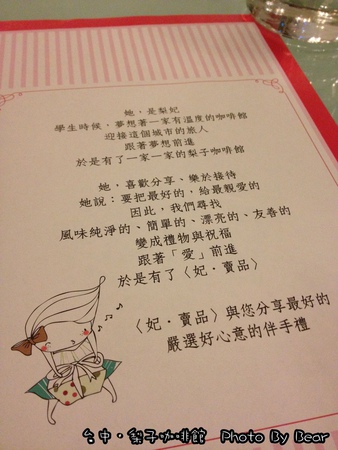 她，是梨妃
學生時候，夢想著一家有溫度的咖啡館
迎接這個城市的旅人
跟著夢想前進
於是有了一家一家的梨子咖啡館
她，喜歡分享、樂於接待
她說：要把最好的，給最親愛的
因此，我們尋找
風味純淨的、簡單的、漂亮的、友善的
變成禮物與祝福
跟著「愛」前進
於是有了〈妃‧賣品〉
〈妃‧賣品〉與您分享最好的
嚴選好心意的伴手禮
台中‧梨子咖啡館 Photo By Bear